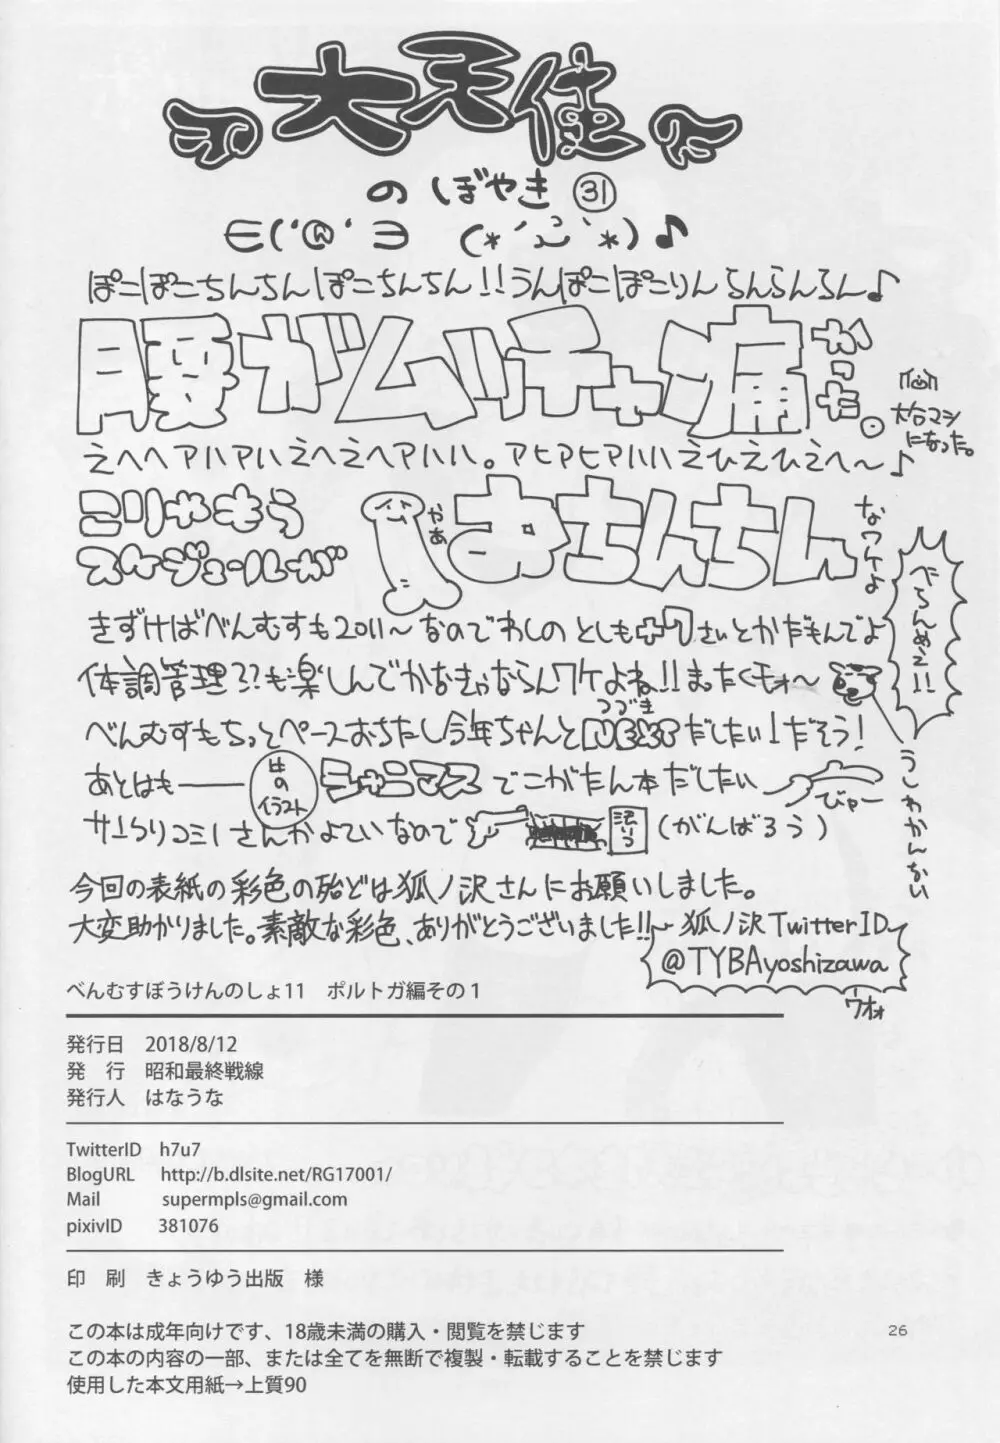 大天使
のぼやき ㉛
∈('@'∋ (*´ω`*)♪
ぽこぽこちんちんぽこちんちん!!うんぽこぽこりんらんらんらん♪
腰がムッチャ痛かった。
大分マシになった。
えへへアハアハえへえへアハハハ。アヒアヒアハハえひえひえへ〜♪
こりゃもう
スケジュールが
やあ
おちんちん
なワケよ
べらんめえ!!
きずけばべんむすも2011〜なのでわしのとしも+7さいとかだもんでよ
体調管理??も楽しんでかなきゃならんワケよね!!まったくモォ〜
うしわかんない
べんむすもちっとペースおちたし今年ちゃんとNEXTだしたい!だそう!
つづき
あとはも──
件のイラスト
シャニマスでこがたん本だしたい
びゃー
サークリコミ1さんかよていなので
(がんばろう)
今回の表紙の彩色の殆どは狐ノ沢さんにお願いしました。
大変助かりました。素敵な彩色、ありがとうございました!!
狐ノ沢TwitterID
@TYBAyoshizawa
ワオォ
べんむすぼうけんのしょ11 ポルトガ編その1
発行日 2018/8/12
発 行 昭和最終戦線
発行人 はなうな
TwitterID h7u7
BlogURL http://b.dlsite.net/RG17001/
Mail supermpls@gmail.com
pixivID 381076
印 刷 きょうゆう出版 様
この本は成年向けです、18歳未満の購入・閲覧を禁じます
この本の内容の一部、または全てを無断で複製・転載することを禁じます
使用した本文用紙→上質90
26